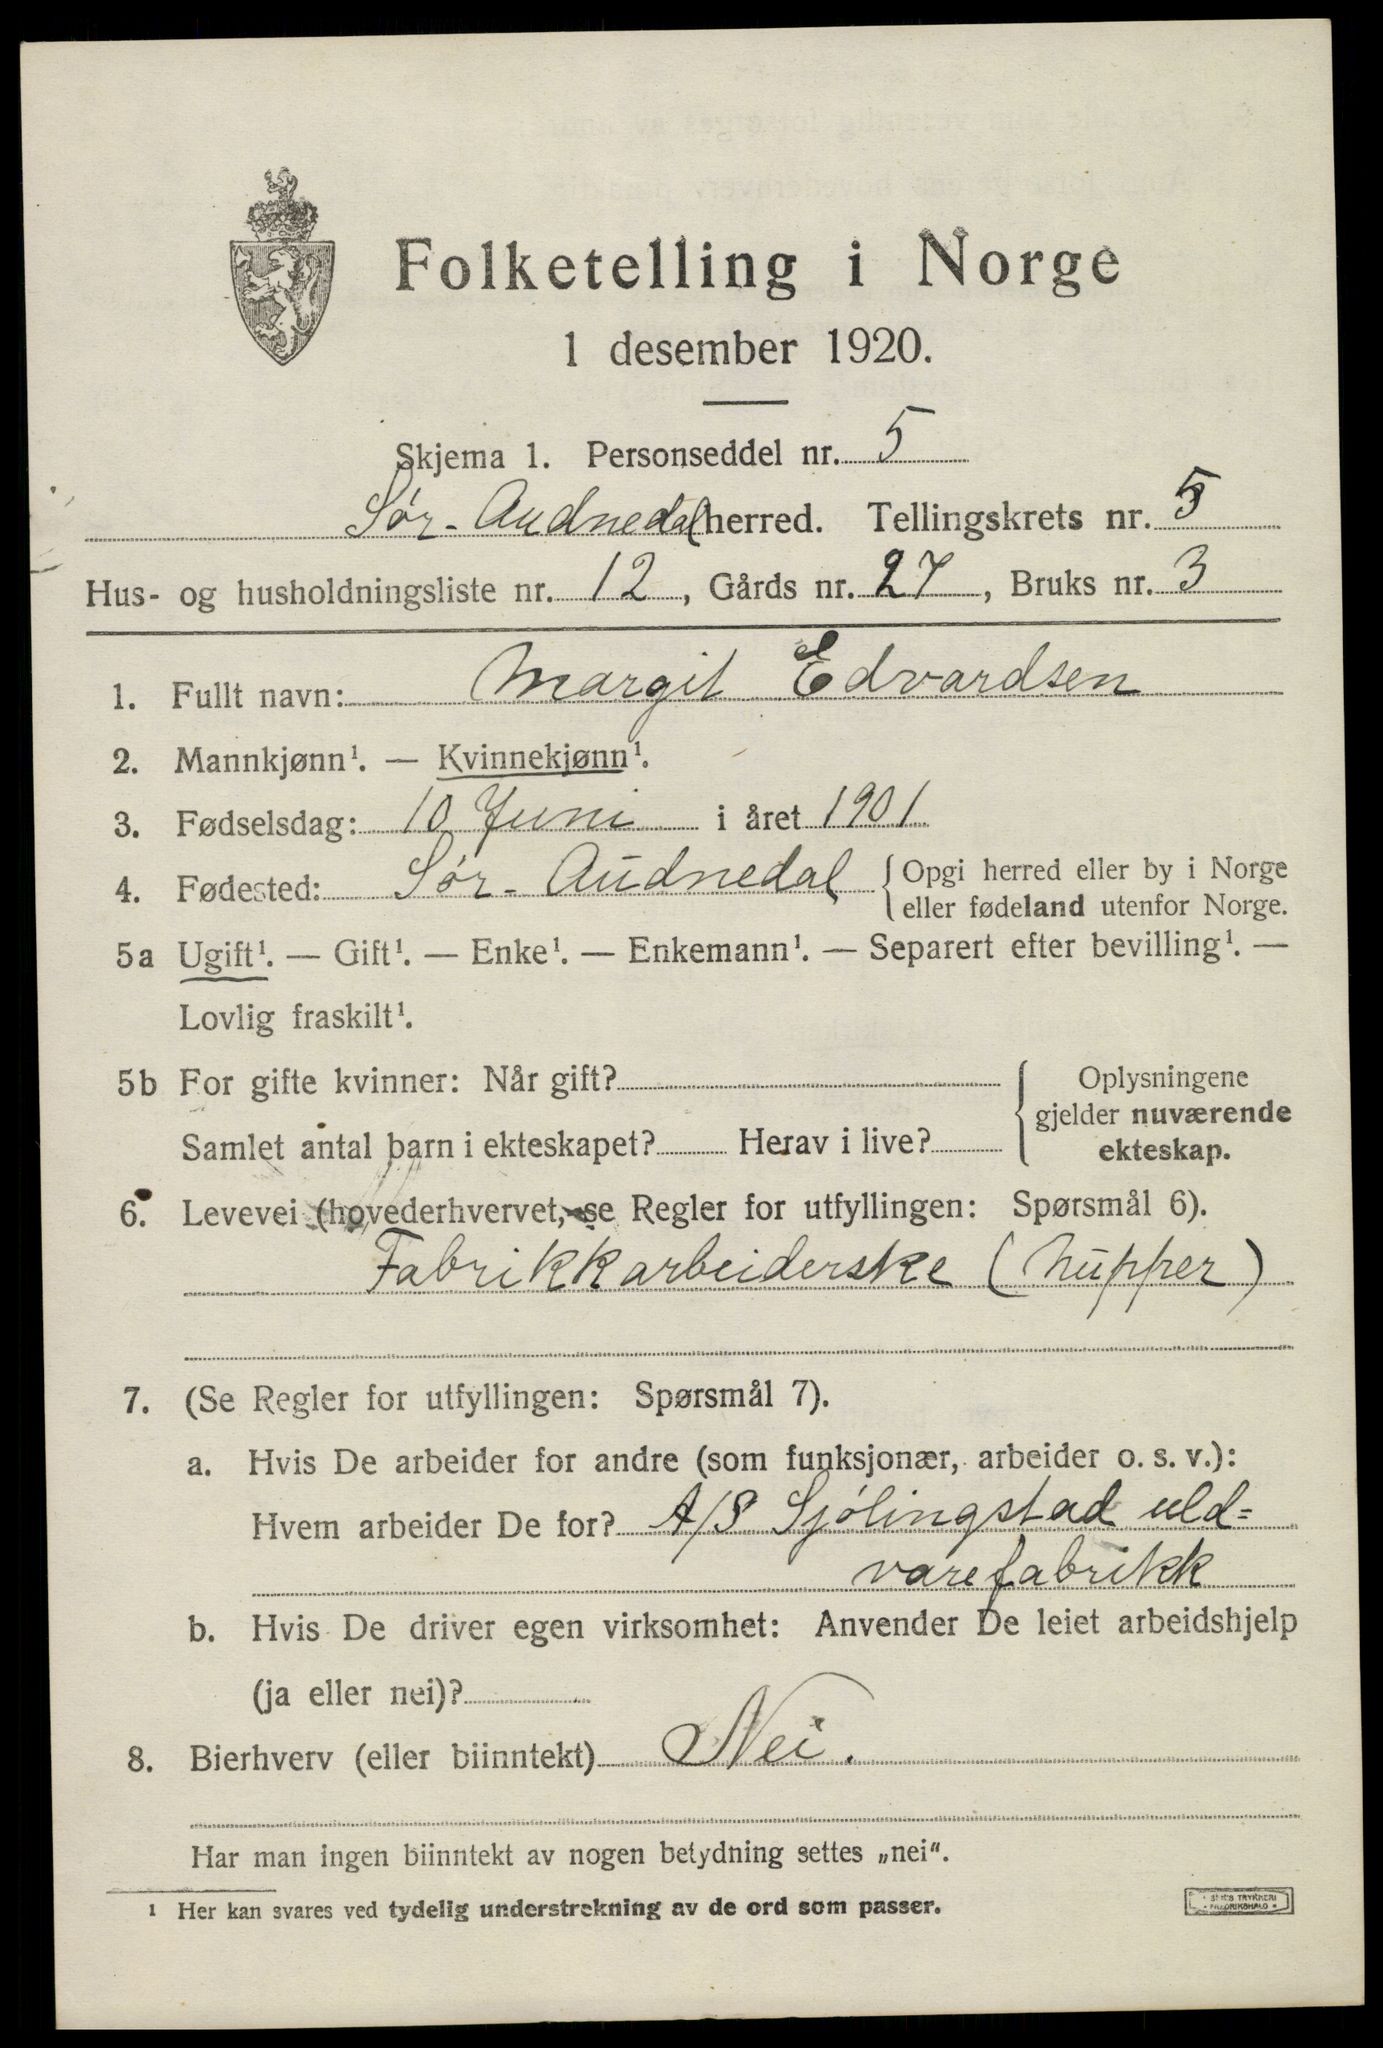 Folketelling i Norge
1 desember 1920.
Skjema 1. Personseddel nr. 5
Sør-Audnedal herred. Tellingskrets nr. 5
Hus- og husholdningsliste nr. 12, Gårds nr. 27, Bruks nr. 3
1. Fullt navn: Margit Edvardsen
2. Mannkjønn¹. — Kvinnekjønn¹.
3. Fødselsdag: 10 Juni i året 1901
4. Fødested: Sør-Audnedal { Opgi herred eller by i Norge
eller fødeland utenfor Norge.
5a Ugift¹. — Gift¹. — Enke¹. — Enkemann¹. — Separert efter bevilling¹. —
Lovlig fraskilt¹.
5b For gifte kvinner: Når gift? Oplysningene
gjelder nuværende
Samlet antal barn i ekteskapet? Herav i live? ekteskap.
6. Levevei (hovederhvervet, se Regler for utfyllingen: Spørsmål 6).
Fabrikkarbeiderske (nupper)
7. (Se Regler for utfyllingen: Spørsmål 7).
a. Hvis De arbeider for andre (som funksjonær, arbeider o. s. v.):
Hvem arbeider De for? A/S Sjølingstad uld=
varefabrikk
b. Hvis De driver egen virksomhet: Anvender De leiet arbeidshjelp
(ja eller nei)?
8. Bierhverv (eller biinntekt) Nei.
Har man ingen biinntekt av nogen betydning settes „nei".
¹ Her kan svares ved tydelig understrekning av de ord som passer.
TRYKKERI
FREDRIKSHALD